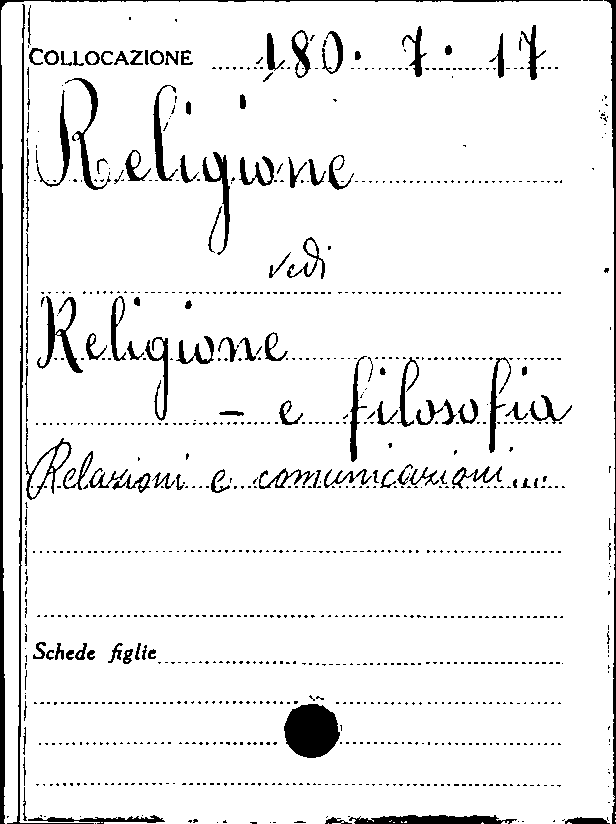 COLLOCAZIONE 180. 7. 17
Religione
vedi
Religione
- e filosofia
Relazioni e comunicazioni...
Schede figlie